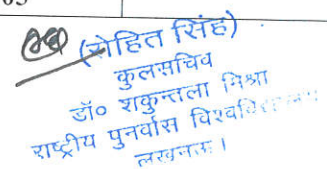 03
(रोहित सिंह)
कुलसचिव
डॉ० शकुन्तला मिश्रा
राष्ट्रीय पुनर्वास विश्वविद्यालय
लखनऊ।